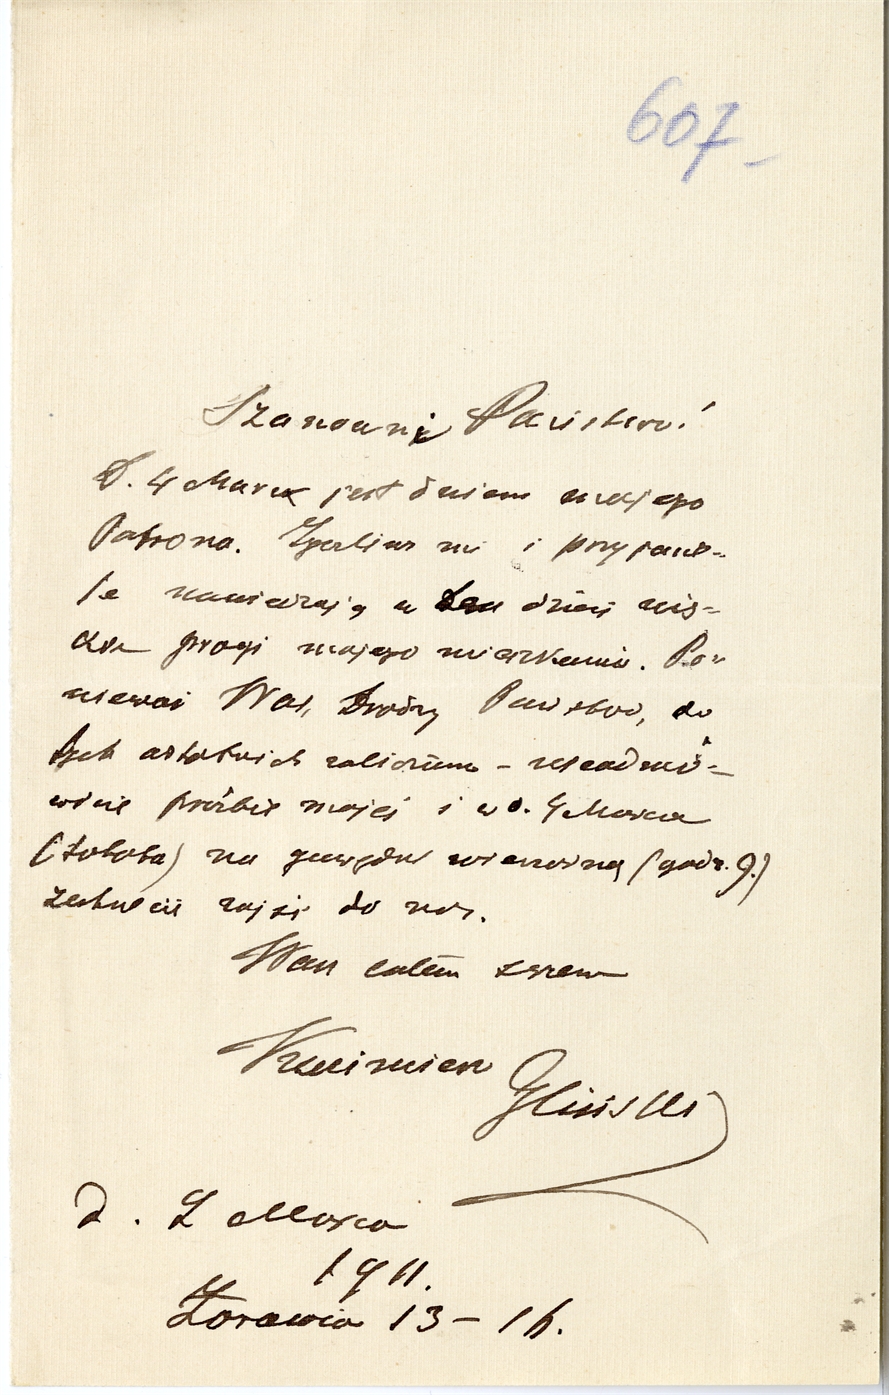 607-
Szanowni Państwo!
D. 4 Marca jest dniem mojego
Patrona. Życzliwi mi i przyjació-
łe nawiedzają w ten dzień niz-
kie progi mojego mieszkania. Po-
nieważ Was, Drodzy Państwo, do
tych ostatnich zaliczam -
prośbie mojej i w d. 4 Marca
(sobota) na gawędkę wieczorną (godz. 9.)
zechciejcie zajść do nas.
Wam całem sercem
Kazimierz
Gliński
d. 2 Marca
1911.
Żórawia 13-16.